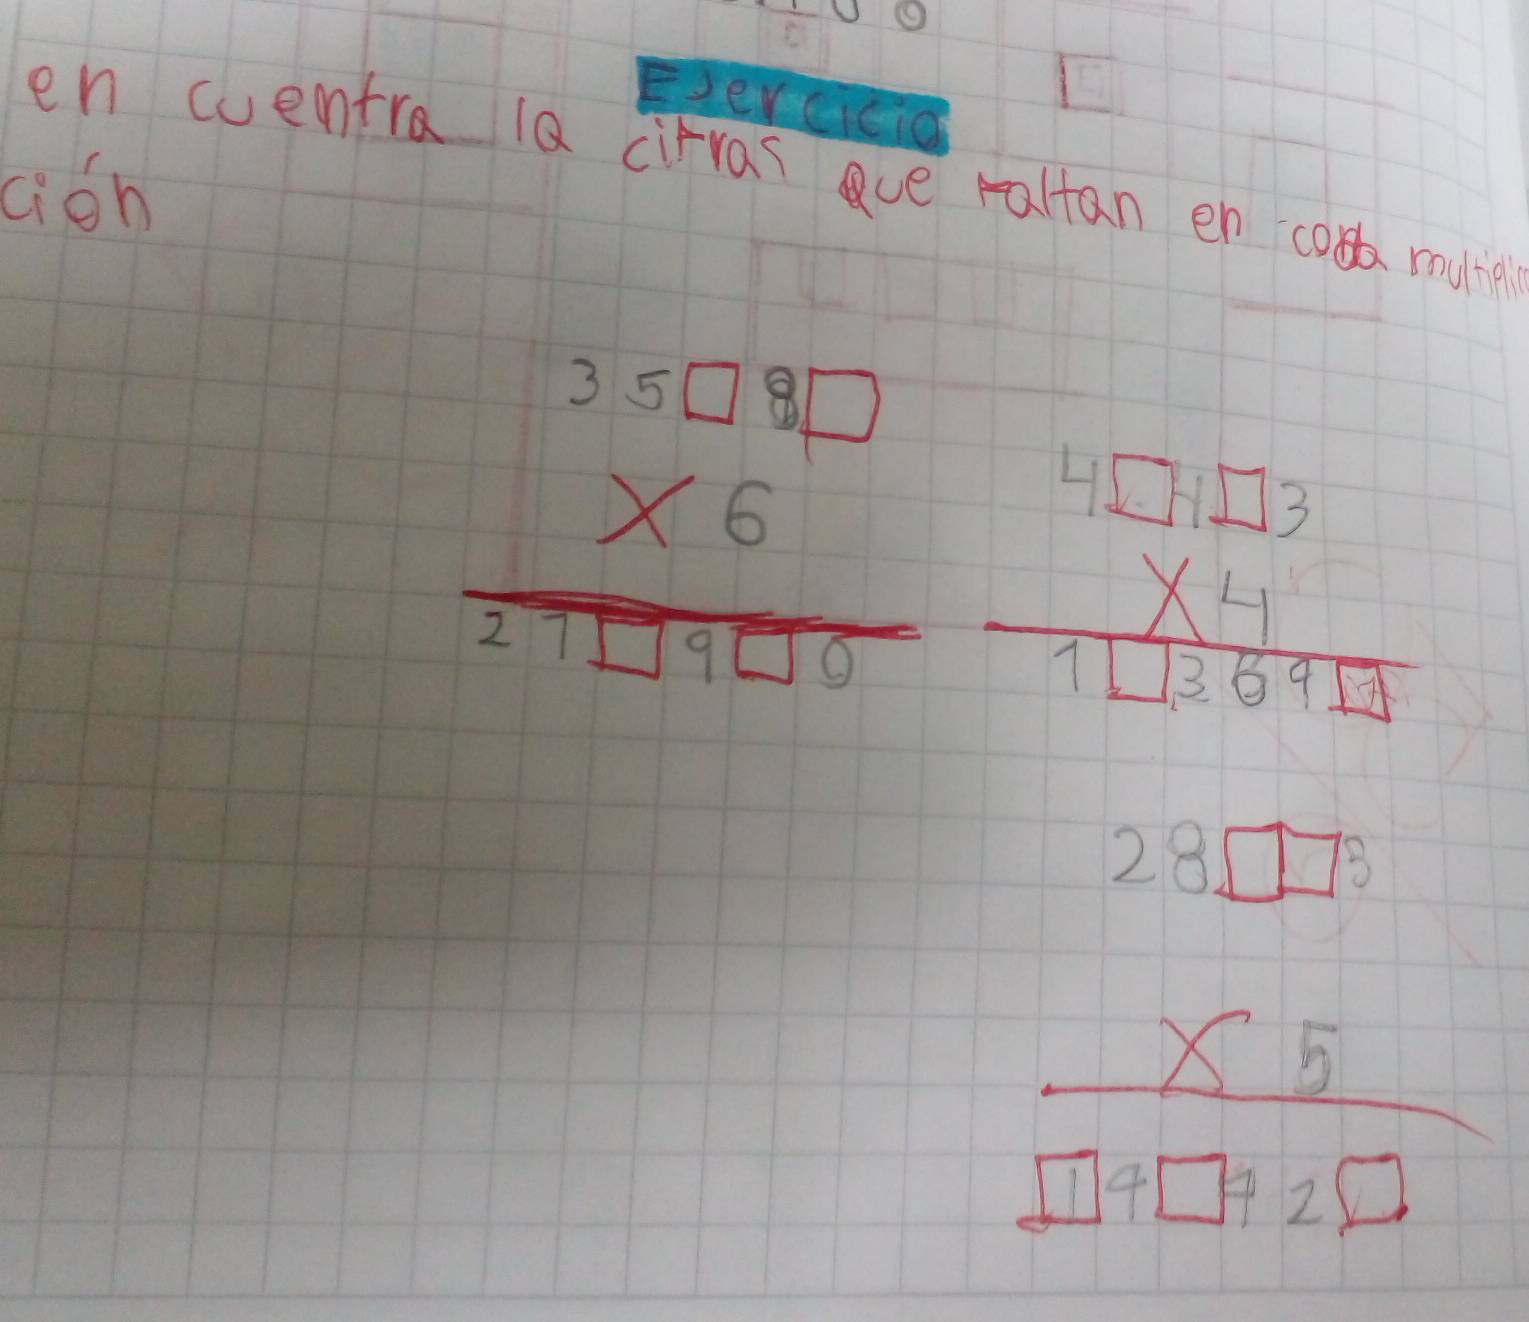 Ejercicio
en cuentra la cifras que faltan en cada multiplica
ción
35□8□
X 6
27□9□0
4□4□3
X 4
1□369□
28□□3
X 5
□4□42□